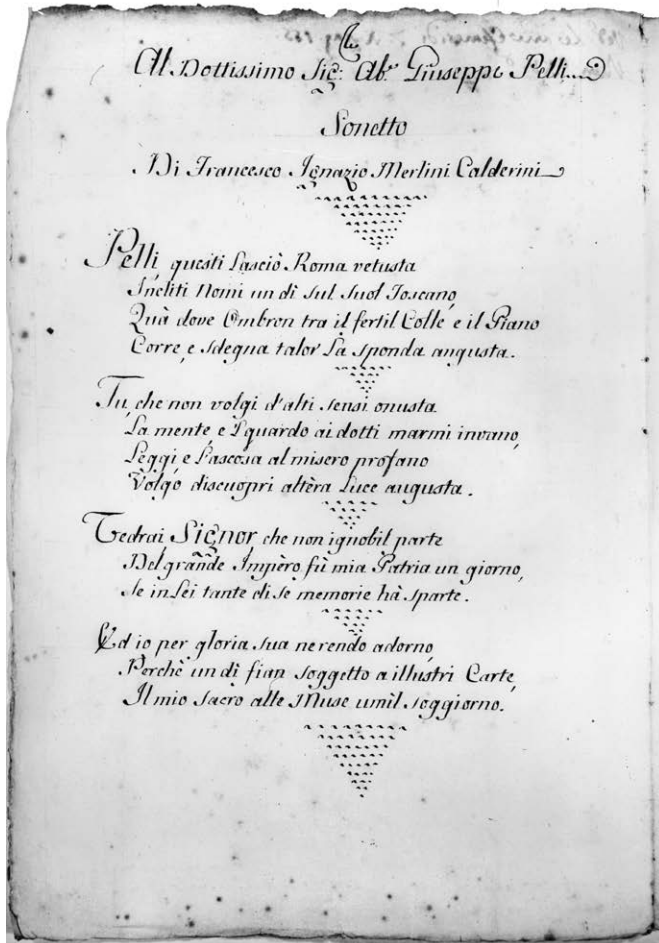 Al Dottissimo Sig: Ab.e Giuseppe Pelli
Sonetto
Di Francesco Ignazio Merlini Calderini
Pelli, questi lasciò Roma vetusta
Incliti Nomi un dì sul suol Toscano,
Quà dove Ombron tra il fertil Colle e il Piano
Corre, e sdegna talor la sponda angusta.
Tu, che non volgi d'alti sensi onusta
La mente, e 'l guardo ai dotti marmi invano,
Leggi e l'ascosa al misero profano
Volgo discuopri altèra luce augusta.
Vedrai Signor che non ignobil parte
Del grande Impèro fù mia Patria un giorno,
Se in lei tante di se memorie hà sparte.
Ed io per gloria sua ne rendo adorno,
Perchè un dì fian soggetto a illustri Carte,
Il mio sacro alle Muse umìl soggiorno.